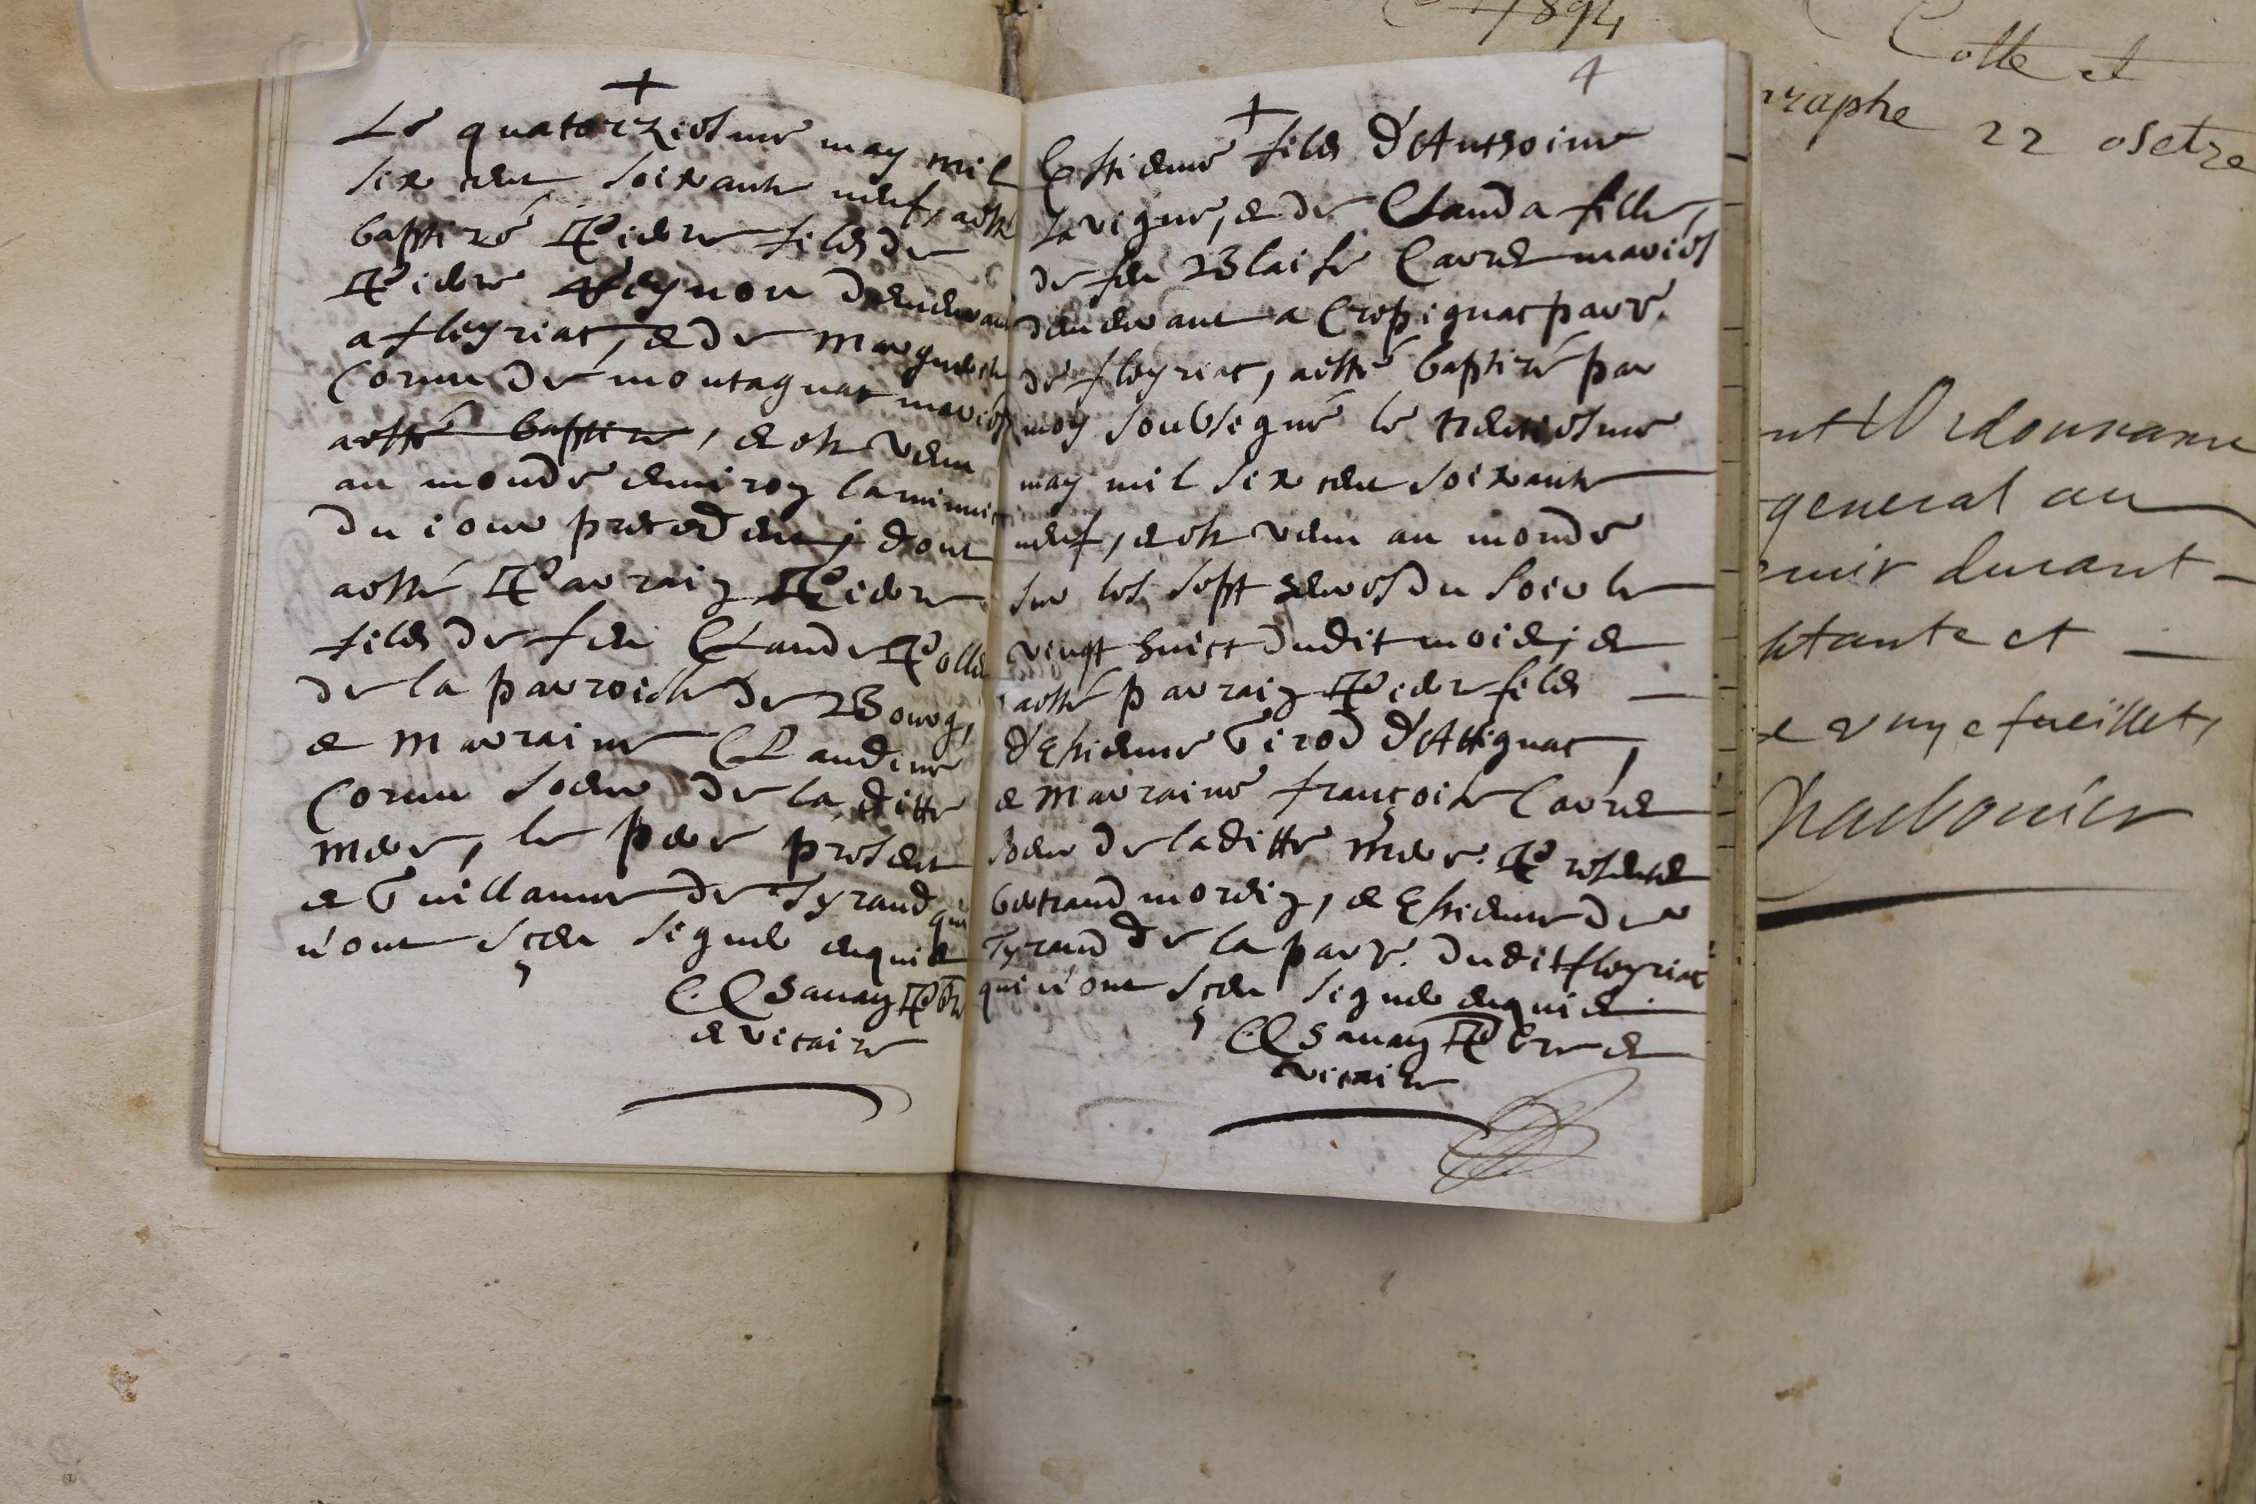 +
Le quatorziesme may mil
six cent soixante neuf, a esté
baptizé Pierre filz de
Pierre Peynon demeurant
a fleyriat, et de Marguerite
Cornu de montagnat mariés
a esté baptizé, et est venu
au monde environ la minuict
du jour precedent, dont
a esté Parrain Pierre
filz de feu Claude Pollet
de la parroisse de Bourg,
et Marraine Claudine
Cornu soeur de la ditte
mere, le pere présent
et Guillaume de Tyrand qui
n'ont sçeu signer enquis
C. Savay Pbre
et vicaire
4
+
Estienne filz d'Anthoine
Lavigne, et de Clauda fille,
de feu Blaise Carret mariés
demeurant a Crepignat parr.
de fleyriat, a esté baptizé par
moy soubsigné le trentiesme
may mil six cent soixante
neuf, et est venu au monde
sur les sept heures du soir le
vingt huict dudit mois, et
a esté parrain Pierre filz
d'Estienne Girod d'Attignat,
et Marraine françoise Carret
soeur de la ditte Mere. Presents
bertrand morein, et Estienne de
Tyrand de la parr. dudit fleyriat
qui n'ont sçeu signer enquis
C. Savay Pbre et
vicaire
1894
Cotte et
raphe 22 osetre
nt Ordonnance
general au
enir durant
ptante et
e vnze fueillets
Charbonier